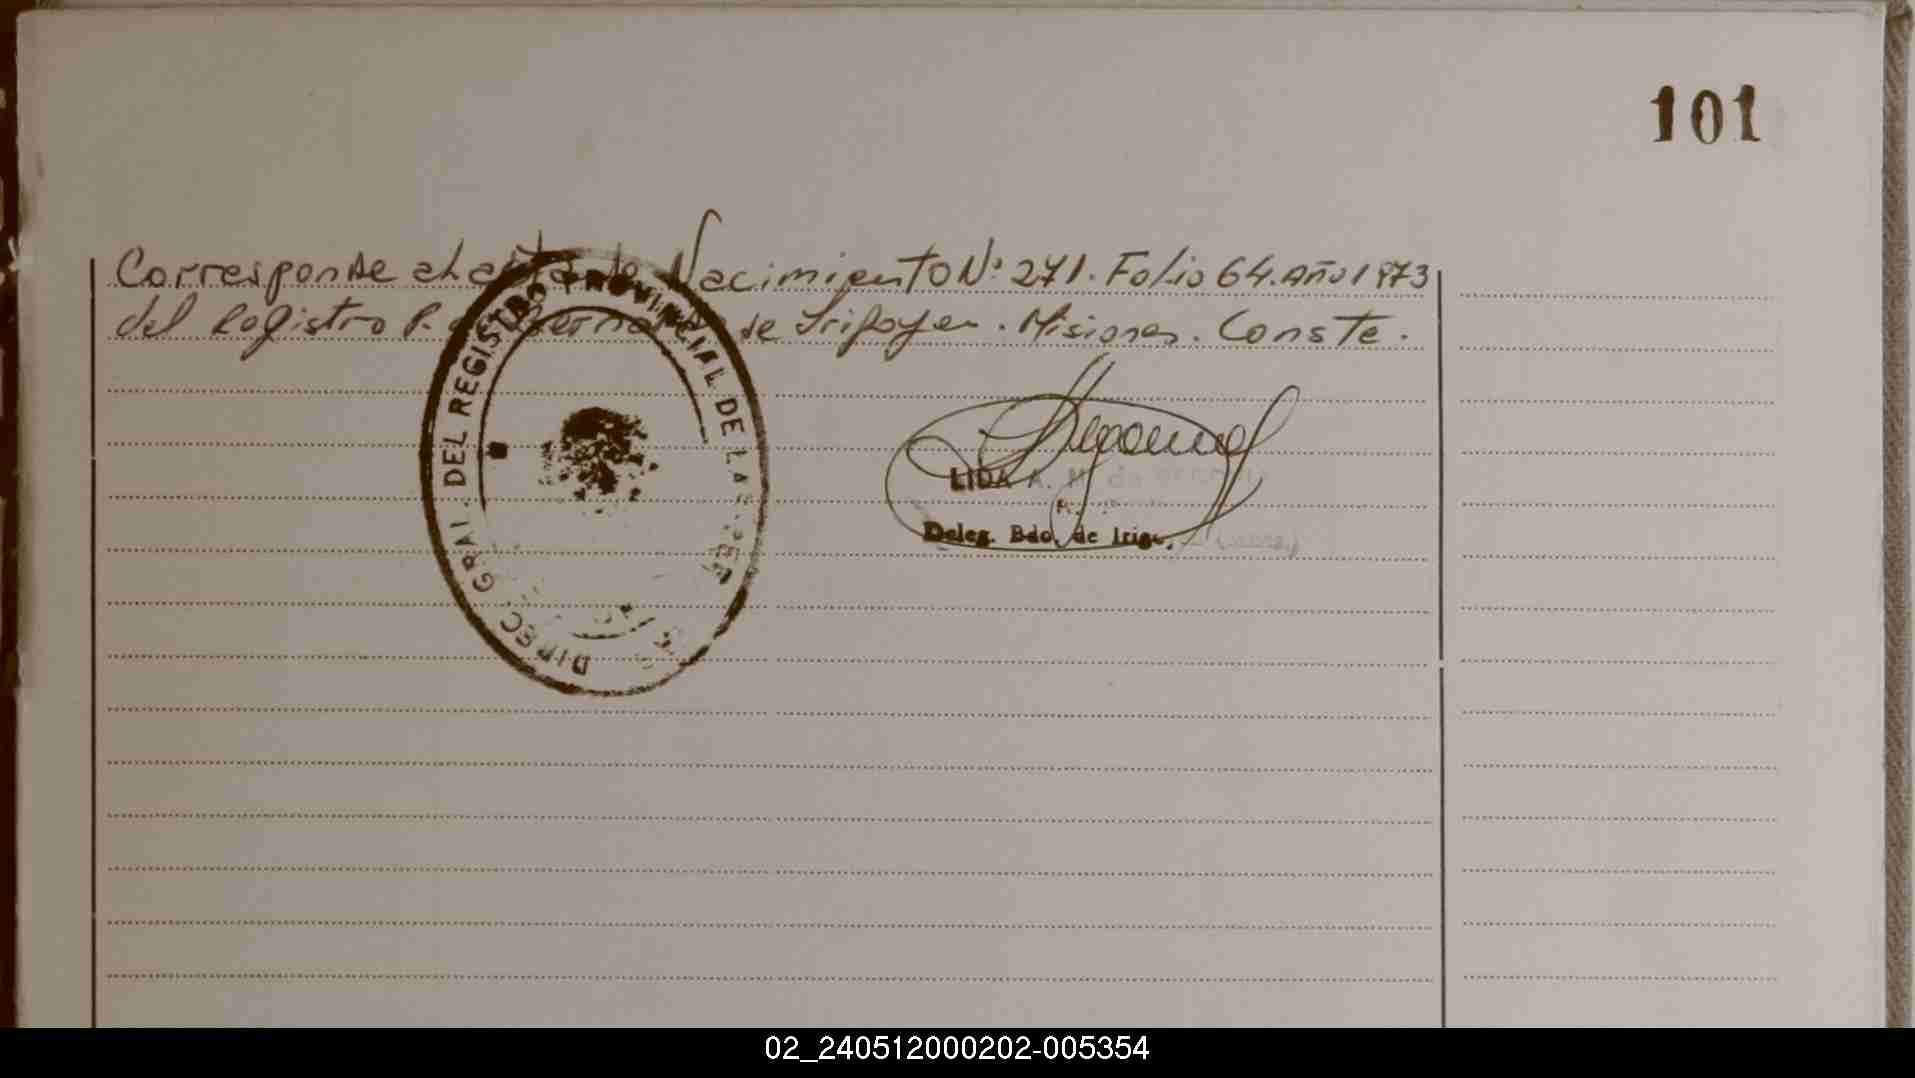 101
Corresponde al acta de Nacimiento Nº 271. Folio 64. Año 1973
del Registro P. de Bernardo de Irigoyen. Misiones. Conste.
DIREC. GRAL. DEL REGISTRO PROVINCIAL DE LAS
LIDA A. M. de
Deleg. Bdo. de Irigo
02_240512000202-005354